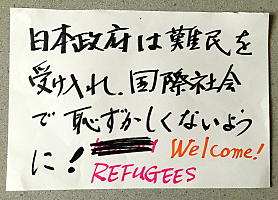 日本政府は難民を
受け入れ、国際社会
で恥ずかしくないよう
に! Welcome!
REFUGEES